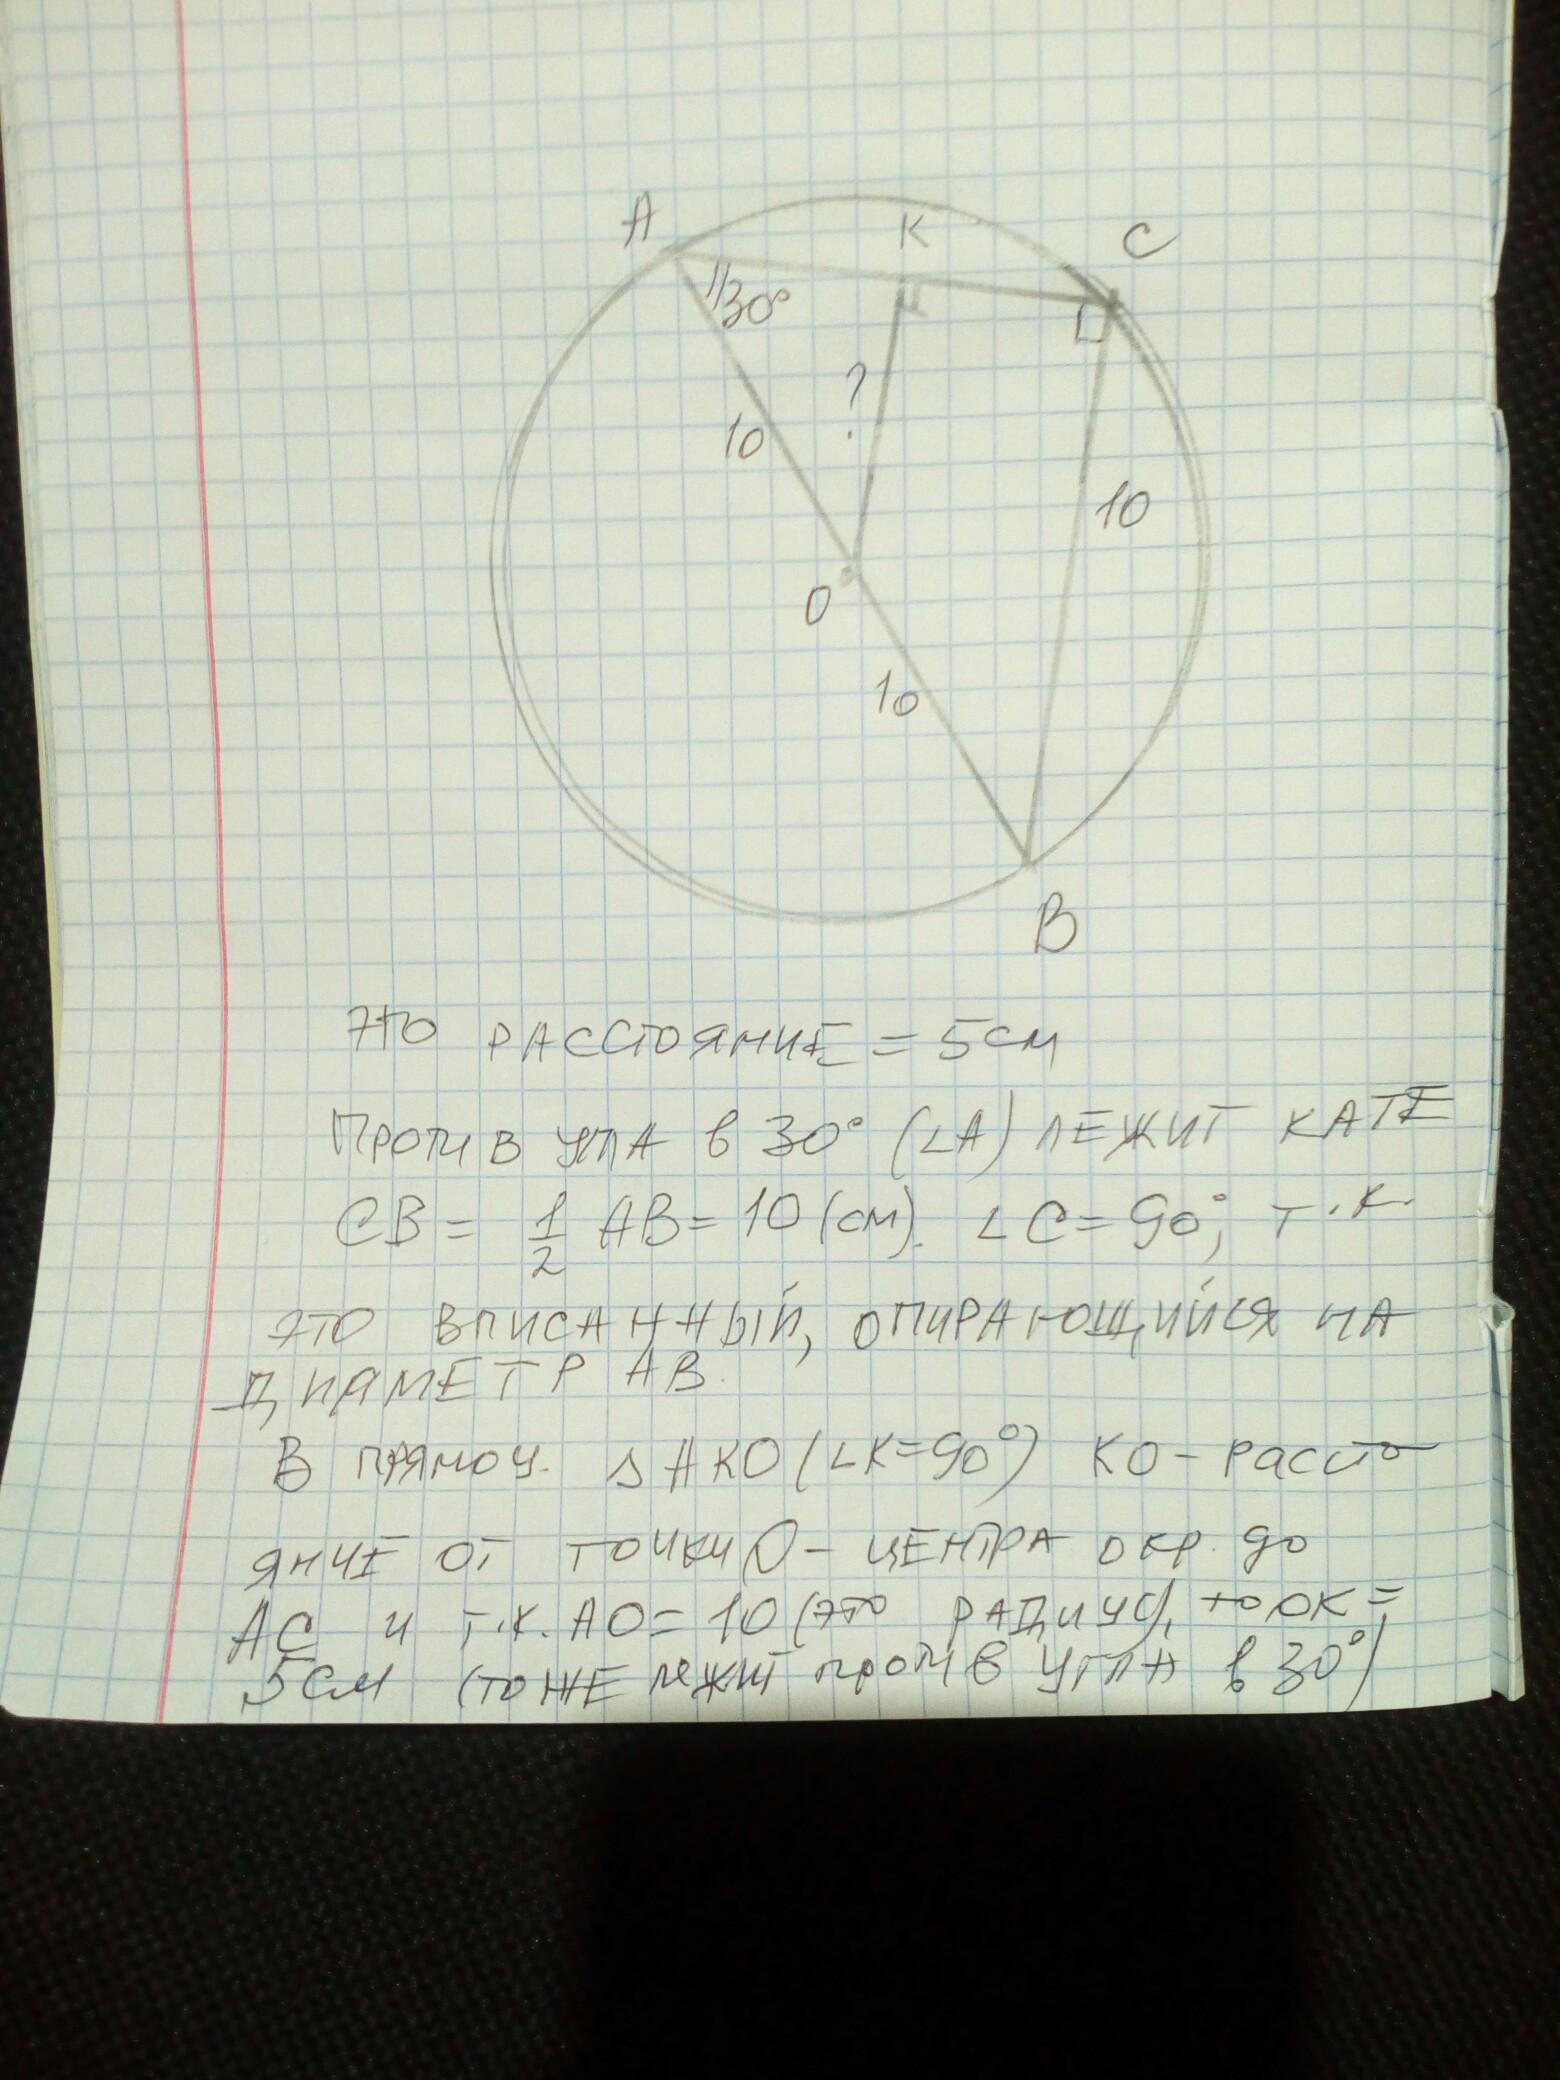 А
К
С
30°
?
10
10
О
10
В
это расстояние = 5см
Против угла в 30° (∠А) лежит кате
СВ = 1/2 АВ = 10 (см). ∠С = 90°, т.к.
это вписанный, опирающийся на
диаметр АВ.
В прямоуг. △ АКО (∠К=90°) КО - рассто
яние от точки О - центра окр. до
АС и т.к. АО = 10 (это радиус), то ОК =
5см (тоже лежит против угла в 30°)